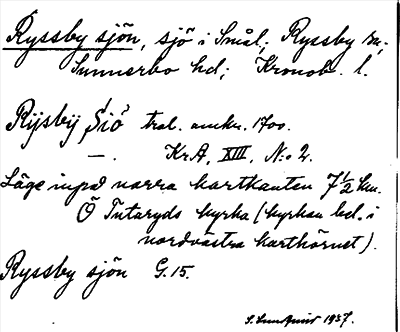 Ryssby sjön, sjö i Smål; Ryssby sn;
Sunnerbo hd; Kronob. l.
Rijsbij Siö tral. omkr. 1700.
—. KrA, XIII, N:o 2.
Läge inpå norra kartkanten 7 1/2 km.
Ö Tutaryds kyrka (kyrkan bel. i
nordvästra karthörnet).
Ryssby sjön G. 15.
S. Lundqvist 1937.